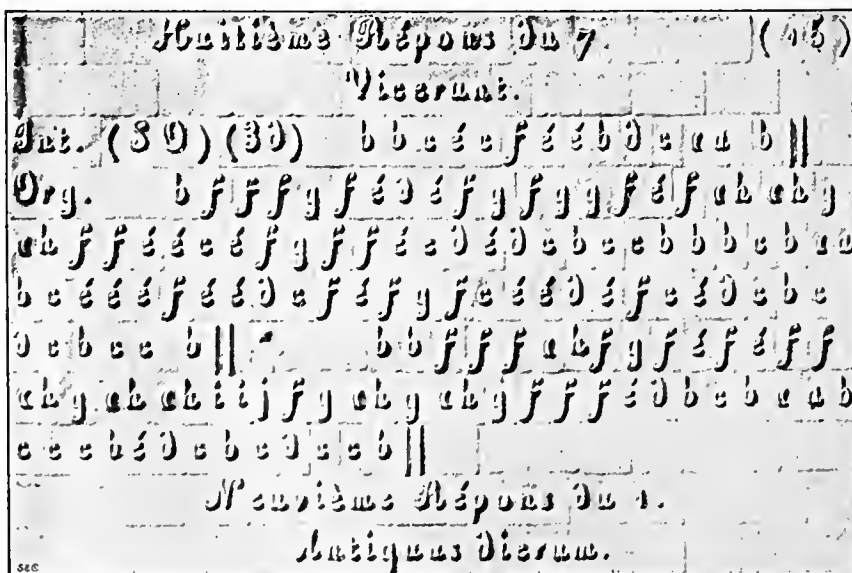 Huitième Répons du 7. (15)
Viderunt.
Int. (SO) (3d) b b c é c f é é b d c a a b ||
Org. b f f f g f é d é f g f g g f é f ah ah g
ah f f é é c é f g f f é c d é d c b c c b b b c b a a
b c é é é f é é d c f é f g f c é é d é f c é d c b c
d c b c c b || b b f f f ah f g f é f é f f
ah g ah ah i i j f g ah g ah g f f f é d b c b a a b
c c c b é d c b c d c c b ||
Neuvième Répons du 1.
Antiquus dierum.